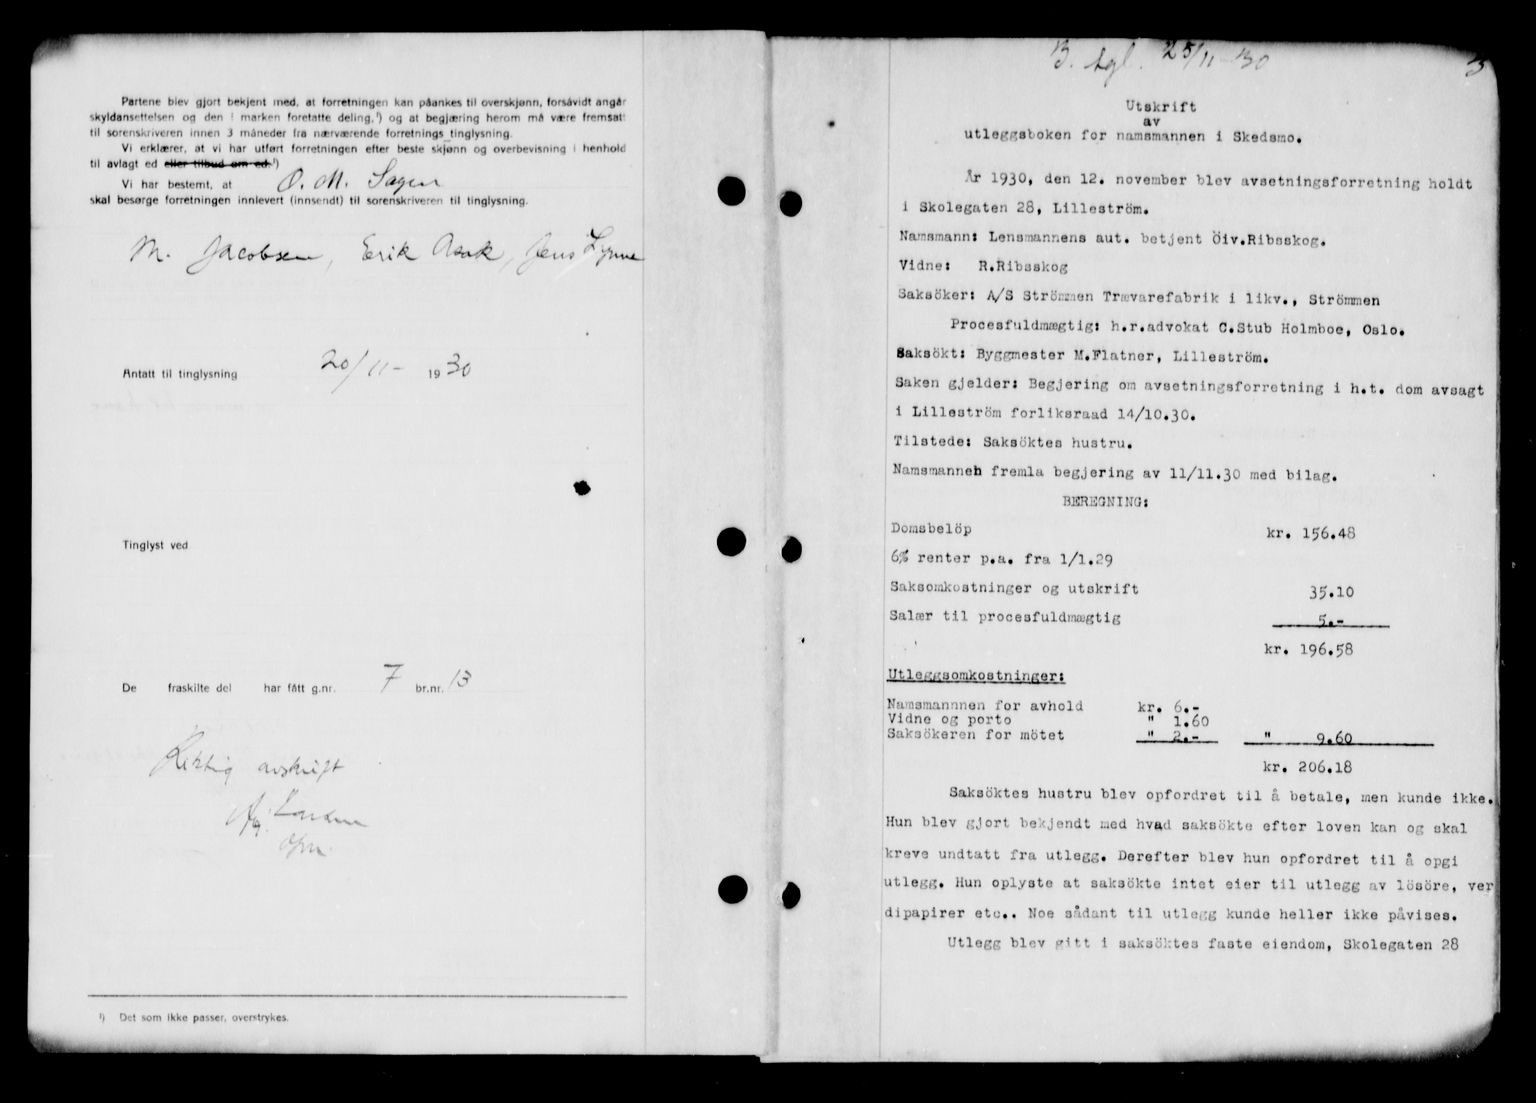 Partene blev gjort bekjent med, at forretningen kan påankes til overskjønn, forsåvidt angår
skyldansettelsen og den i marken foretatte deling,¹) og at begjæring herom må være fremsatt
til sorenskriveren innen 3 måneder fra nærværende forretnings tinglysning.
Vi erklærer, at vi har utført forretningen efter beste skjønn og overbevisning i henhold
til avlagt ed eller tilbud om ed.¹)
Vi har bestemt, at O. M. Sagen
skal besørge forretningen innlevert (innsendt) til sorenskriveren til tinglysning.
M. Jacobsen, Erik Aaak, Jens Lynne
Antatt til tinglysning 20/11- 1930
Tinglyst ved
De fraskilte del har fått g.nr. 7 br.nr. 13
Riktig avskrift
¹) Det som ikke passer, overstrykes.
B. tgl. 25/11-30
3
Utskrift
av
utleggsboken for namsmannen i Skedsmo.
År 1930, den 12. november blev avsetningsforretning holdt
i Skolegaten 28, Lilleström.
Namsmann: Lensmannens aut. betjent Öiv.Ribsskog.
Vidne: R.Ribsskog
Saksöker: A/S Strömmen Trævarefabrik i likv., Strömmen
Procesfuldmægtig: h.r.advokat C.Stub Holmboe, Oslo.
Saksökt: Byggmester M.Flatner, Lilleström.
Saken gjelder: Begjering om avsetningsforretning i h.t. dom avsagt
i Lilleström forliksraad 14/10.30.
Tilstede: Saksöktes hustru.
Namsmannen fremla begjering av 11/11.30 med bilag.
BEREGNING:
Domsbelöp kr. 156.48
6% renter p.a. fra 1/1.29
Saksomkostninger og utskrift 35.10
Salær til procesfuldmægtig 5.-
kr. 196.58
Utleggsomkostninger:
Namsmannnen for avhold kr. 6.-
Vidne og porto " 1.60
Saksökeren for mötet " 2.- " 9.60
kr. 206.18
Saksöktes hustru blev opfordret til å betale, men kunde ikke.
Hun blev gjort bekjendt med hvad saksökte efter loven kan og skal
kreve undtatt fra utlegg. Derefter blev hun opfordret til å opgi
utlegg. Hun oplyste at saksökte intet eier til utlegg av lösöre, ver
dipapirer etc.. Noe sådant til utlegg kunde heller ikke påvises.
Utlegg blev gitt i saksöktes faste eiendom, Skolegaten 28